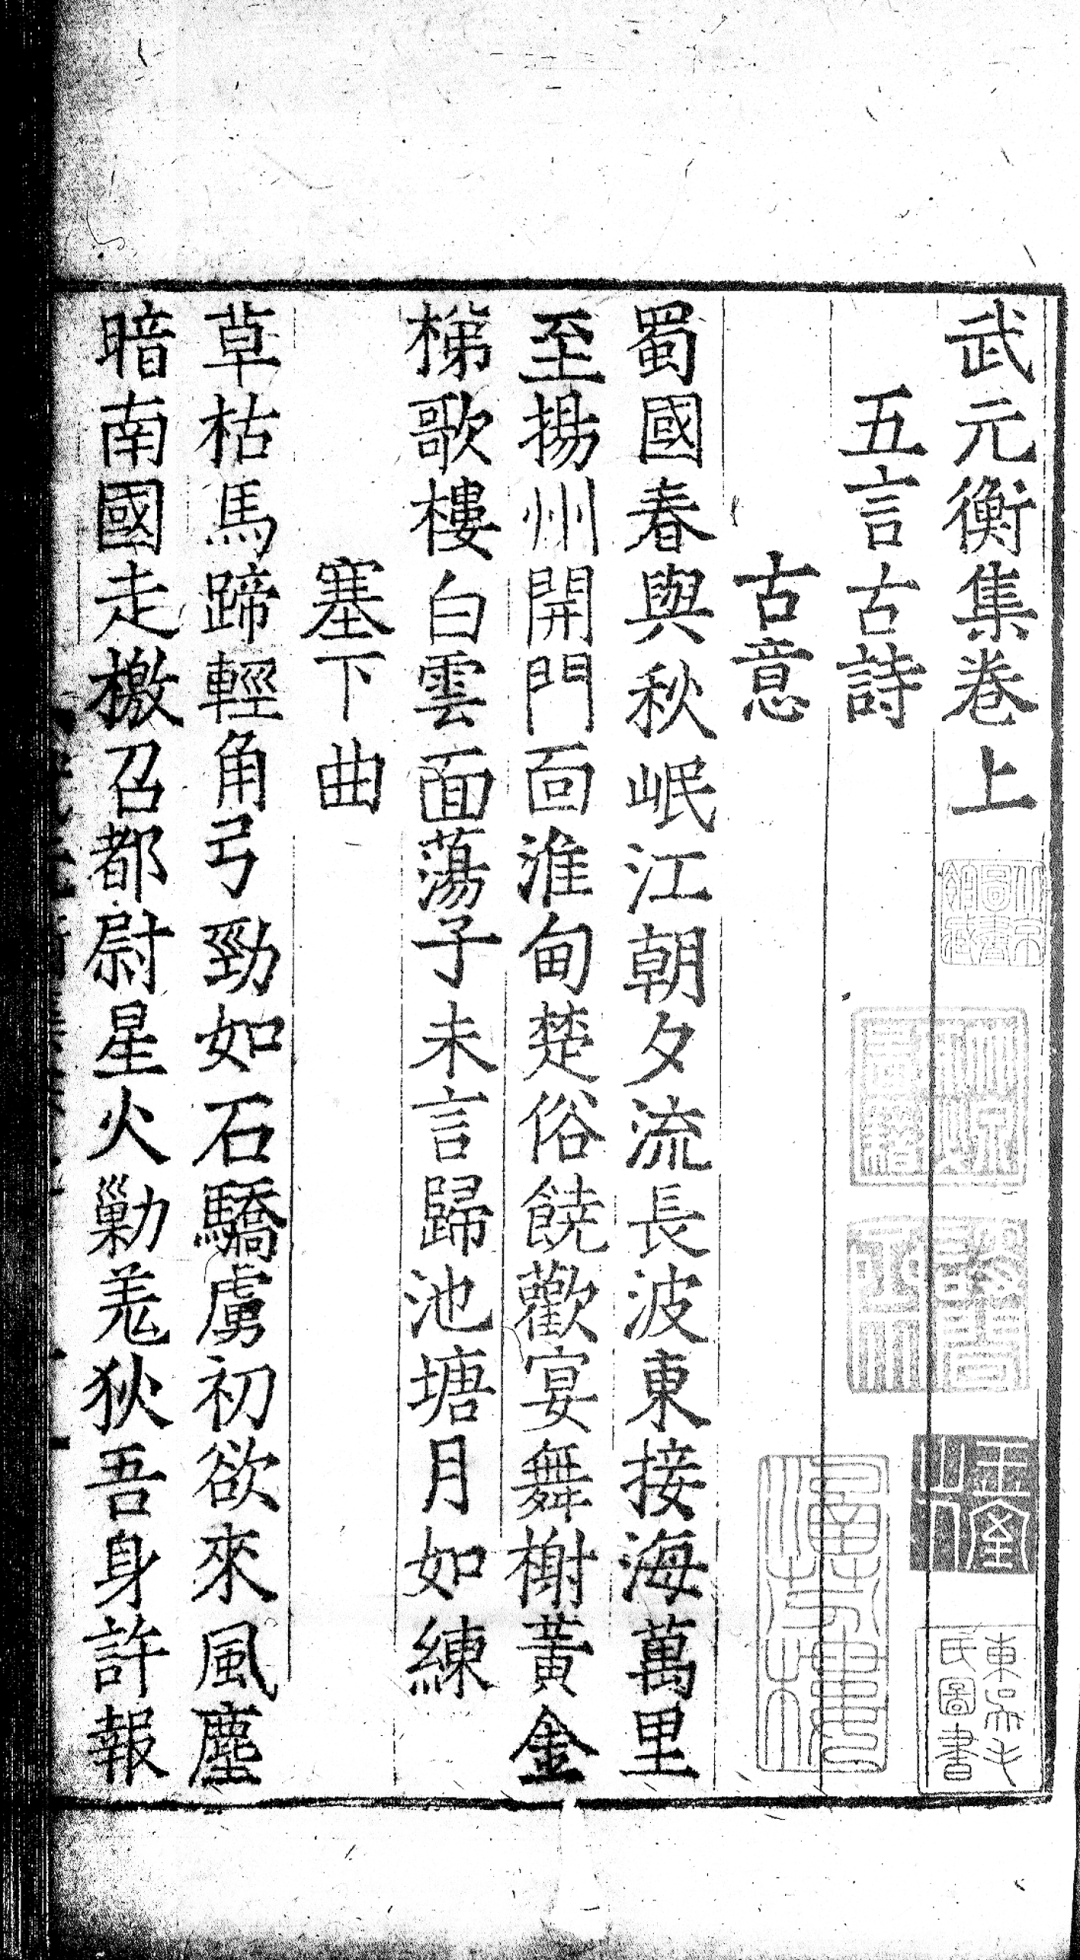 武元衡集卷上
五言古詩
古意
蜀國春與秋岷江朝夕流長波東接海萬里
至揚州開門面淮甸楚俗饒歡宴舞榭黃金
梯歌樓白雲面蕩子未言歸池塘月如練
塞下曲
草枯馬蹄輕角弓勁如石驕虜初欲來風塵
暗南國走檄召都尉星火勦羌狄吾身許報
東吳毛
氏圖書